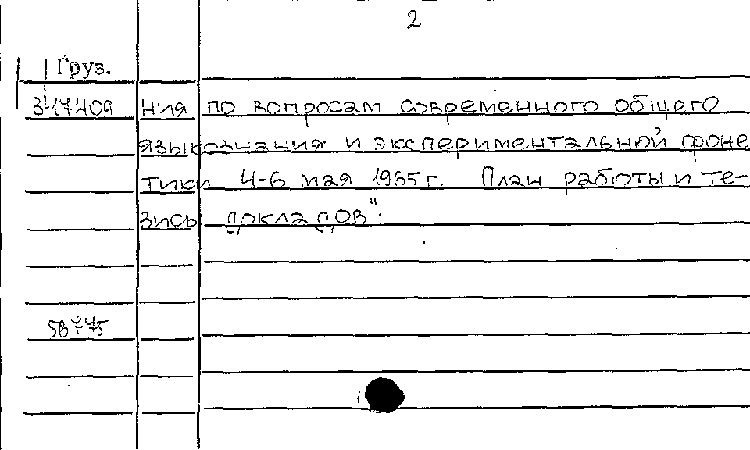 2
Груз.
347409 ния по вопросам современного общего
языкознания и экспериментальной фоне
тики 4-6 мая 1965 г. План работы и те-
зисы докладов".